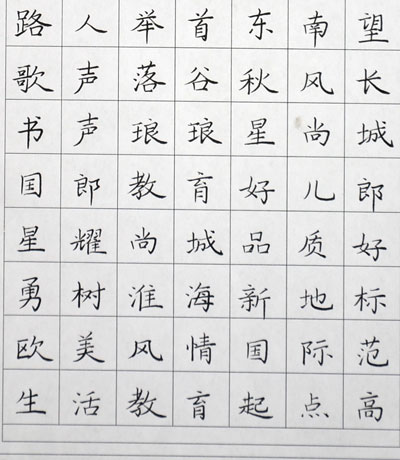 路人举首东南望
歌声落谷秋风长
书声琅琅星尚城
国郎教育好儿郎
星耀尚城品质好
勇树淮海新地标
欧美风情国际范
生活教育起点高